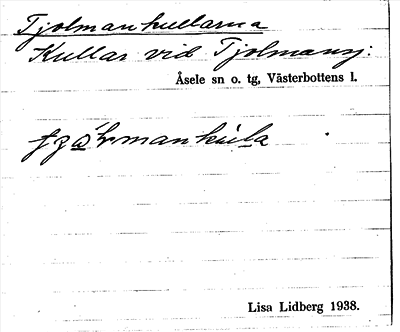 Tjolmankullarna
Kullar vid Tjolmansj:
Åsele sn o. tg, Västerbottens l.
Lisa Lidberg 1938.